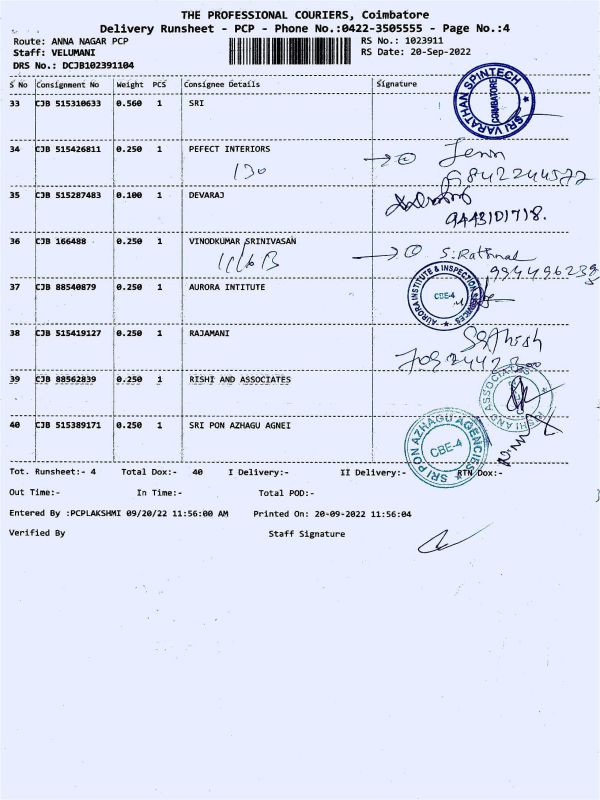 THE PROFESSIONAL COURIERS, Coimbatore
Delivery Runsheet - PCP - Phone No.:0422-3505555 - Page No.:4
Route: ANNA NAGAR PCP RS No.: 1023911
Staff: VELUMANI RS Date: 20-Sep-2022
DRS No.: DCJB102391104
S No Consignment No Weight PCS Consignee Details Signature
33 CJB 515310633 0.560 1 SRI
SRI VARATHAN SPINTECH
COIMBATORE
34 CJB 515426811 0.250 1 PEFECT INTERIORS
130
35 CJB 515287483 0.100 1 DEVARAJ
9443101718.
36 CJB 166488 0.250 1 VINODKUMAR SRINIVASAN
37 CJB 88540879 0.250 1 AURORA INTITUTE
AURORA INSTITUTE & INSPECTION SERVICES
CBE-4
38 CJB 515419127 0.250 1 RAJAMANI
39 CJB 88562839 0.250 1 RISHI AND ASSOCIATES
RISHI AND ASSOCIATES
40 CJB 515389171 0.250 1 SRI PON AZHAGU AGNEI
SRI PON AZHAGU AGENCIES
CBE-4
Tot. Runsheet:- 4 Total Dox:- 40 I Delivery:- II Delivery:- RTN Dox:-
Out Time:- In Time:- Total POD:-
Entered By :PCPLAKSHMI 09/20/22 11:56:00 AM Printed On: 20-09-2022 11:56:04
Verified By Staff Signature